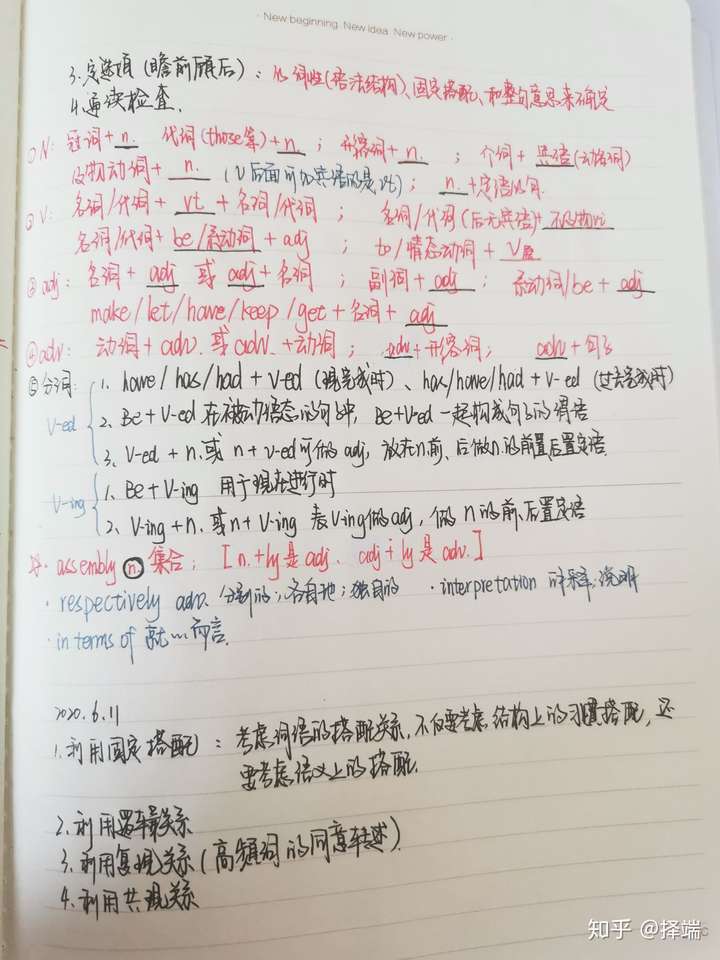 · New beginning New idea New power ·
3.定选项(瞻前顾后):从词性(语法结构)、固定搭配、和整句意思来确定
4.通读检查.
①N: 冠词+n. 代词(those等)+n ; 形容词+n. ; 介词+宾语(动名词)
及物动词+n. (V后面可加宾语的是vt) ; n.+定语从句
②V: 名词/代词+vt+名词/代词 ; 名词/代词(后无宾语)+不及物vi
名词/代词+be/系动词+adj ; to/情态动词+V原
③adj: 名词+adj 或 adj+名词 ; 副词+adj ; 系动词/be+adj
make/let/have/keep/get+名词+adj
④adv: 动词+adv.或adv.+动词 ; adv+形容词; adv+句子
⑤分词: 1. have/has/had+v-ed (现完成时)、has/have/had+v-ed (过去完成时)
V-ed 2. Be+V-ed在被动语态的句中, Be+V-ed一起构成句子的谓语
3. V-ed+n.或 n+v-ed可做adj, 放在n.前、后做n.的前置后置定语.
V-ing 1. Be+V-ing 用于现在进行时
2. V-ing+n.或n+V-ing 表V-ing做adj, 做n的前、后置定语
· assembly n. 集合; [n.+ly是adj. adj+ly是adv.]
· respectively adv. 分别的;各自地;独自的 · interpretation 解释;说明
· in terms of 就…而言.
2020.6.11
1.利用固定搭配 : 考虑词语的搭配关系,不仅要考虑结构上的习惯搭配,还
要考虑语义上的搭配.
2.利用逻辑关系
3.利用复现关系(高频词的同意转述)
4.利用共现关系
知乎 @择端